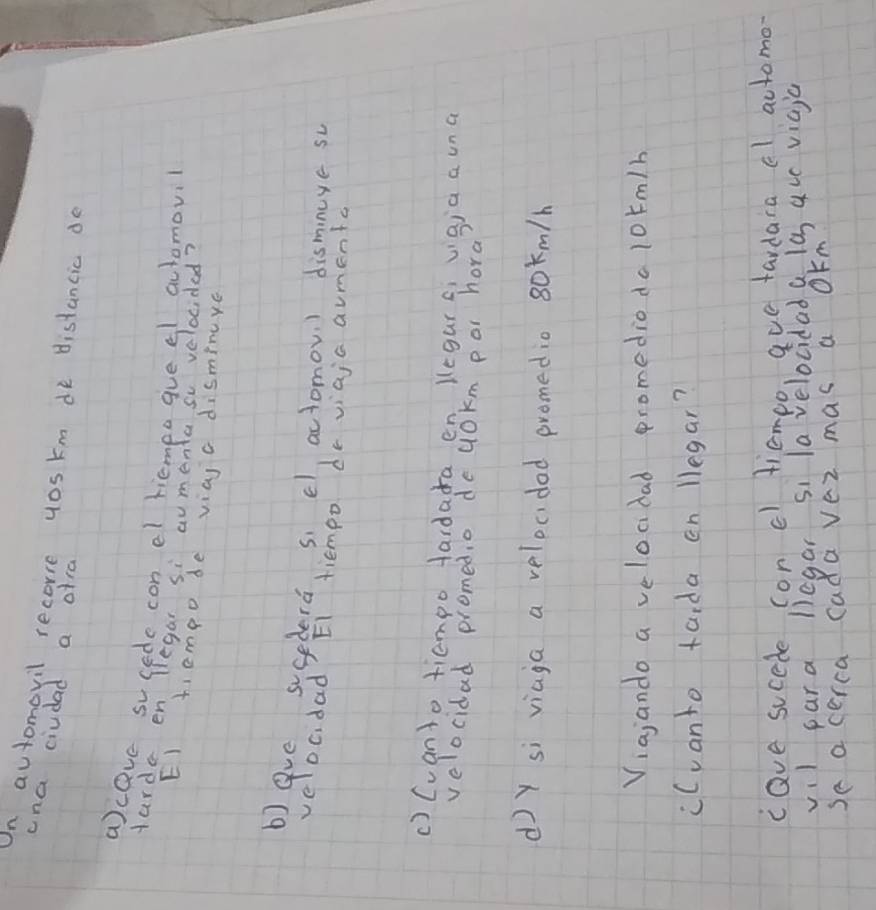 Un automovil recorre 405 km de distancia de
una ciudad a otra
a) ¿Que sucede con el tiempo que el automovil
tarde en llegar si aumenta su velocidad?
El tiempo de viaje disminuye
b) Que sucederá si el automovil disminuye su
velocidad El tiempo de viaje aumenta
c) Cuanto tiempo tardara en llegar si viaja a una
velocidad promedio de 40 km por hora
d) Y si viaja a velocidad promedio 80 km/h
Viajando a velocidad promedio de 10 km/h
¿Cuanto tarda en llegar?
¿Que sucede con el tiempo que tardara el automo-
vil para llegar si la velocidad a la que viaja
se acerca cada vez mas a 0km